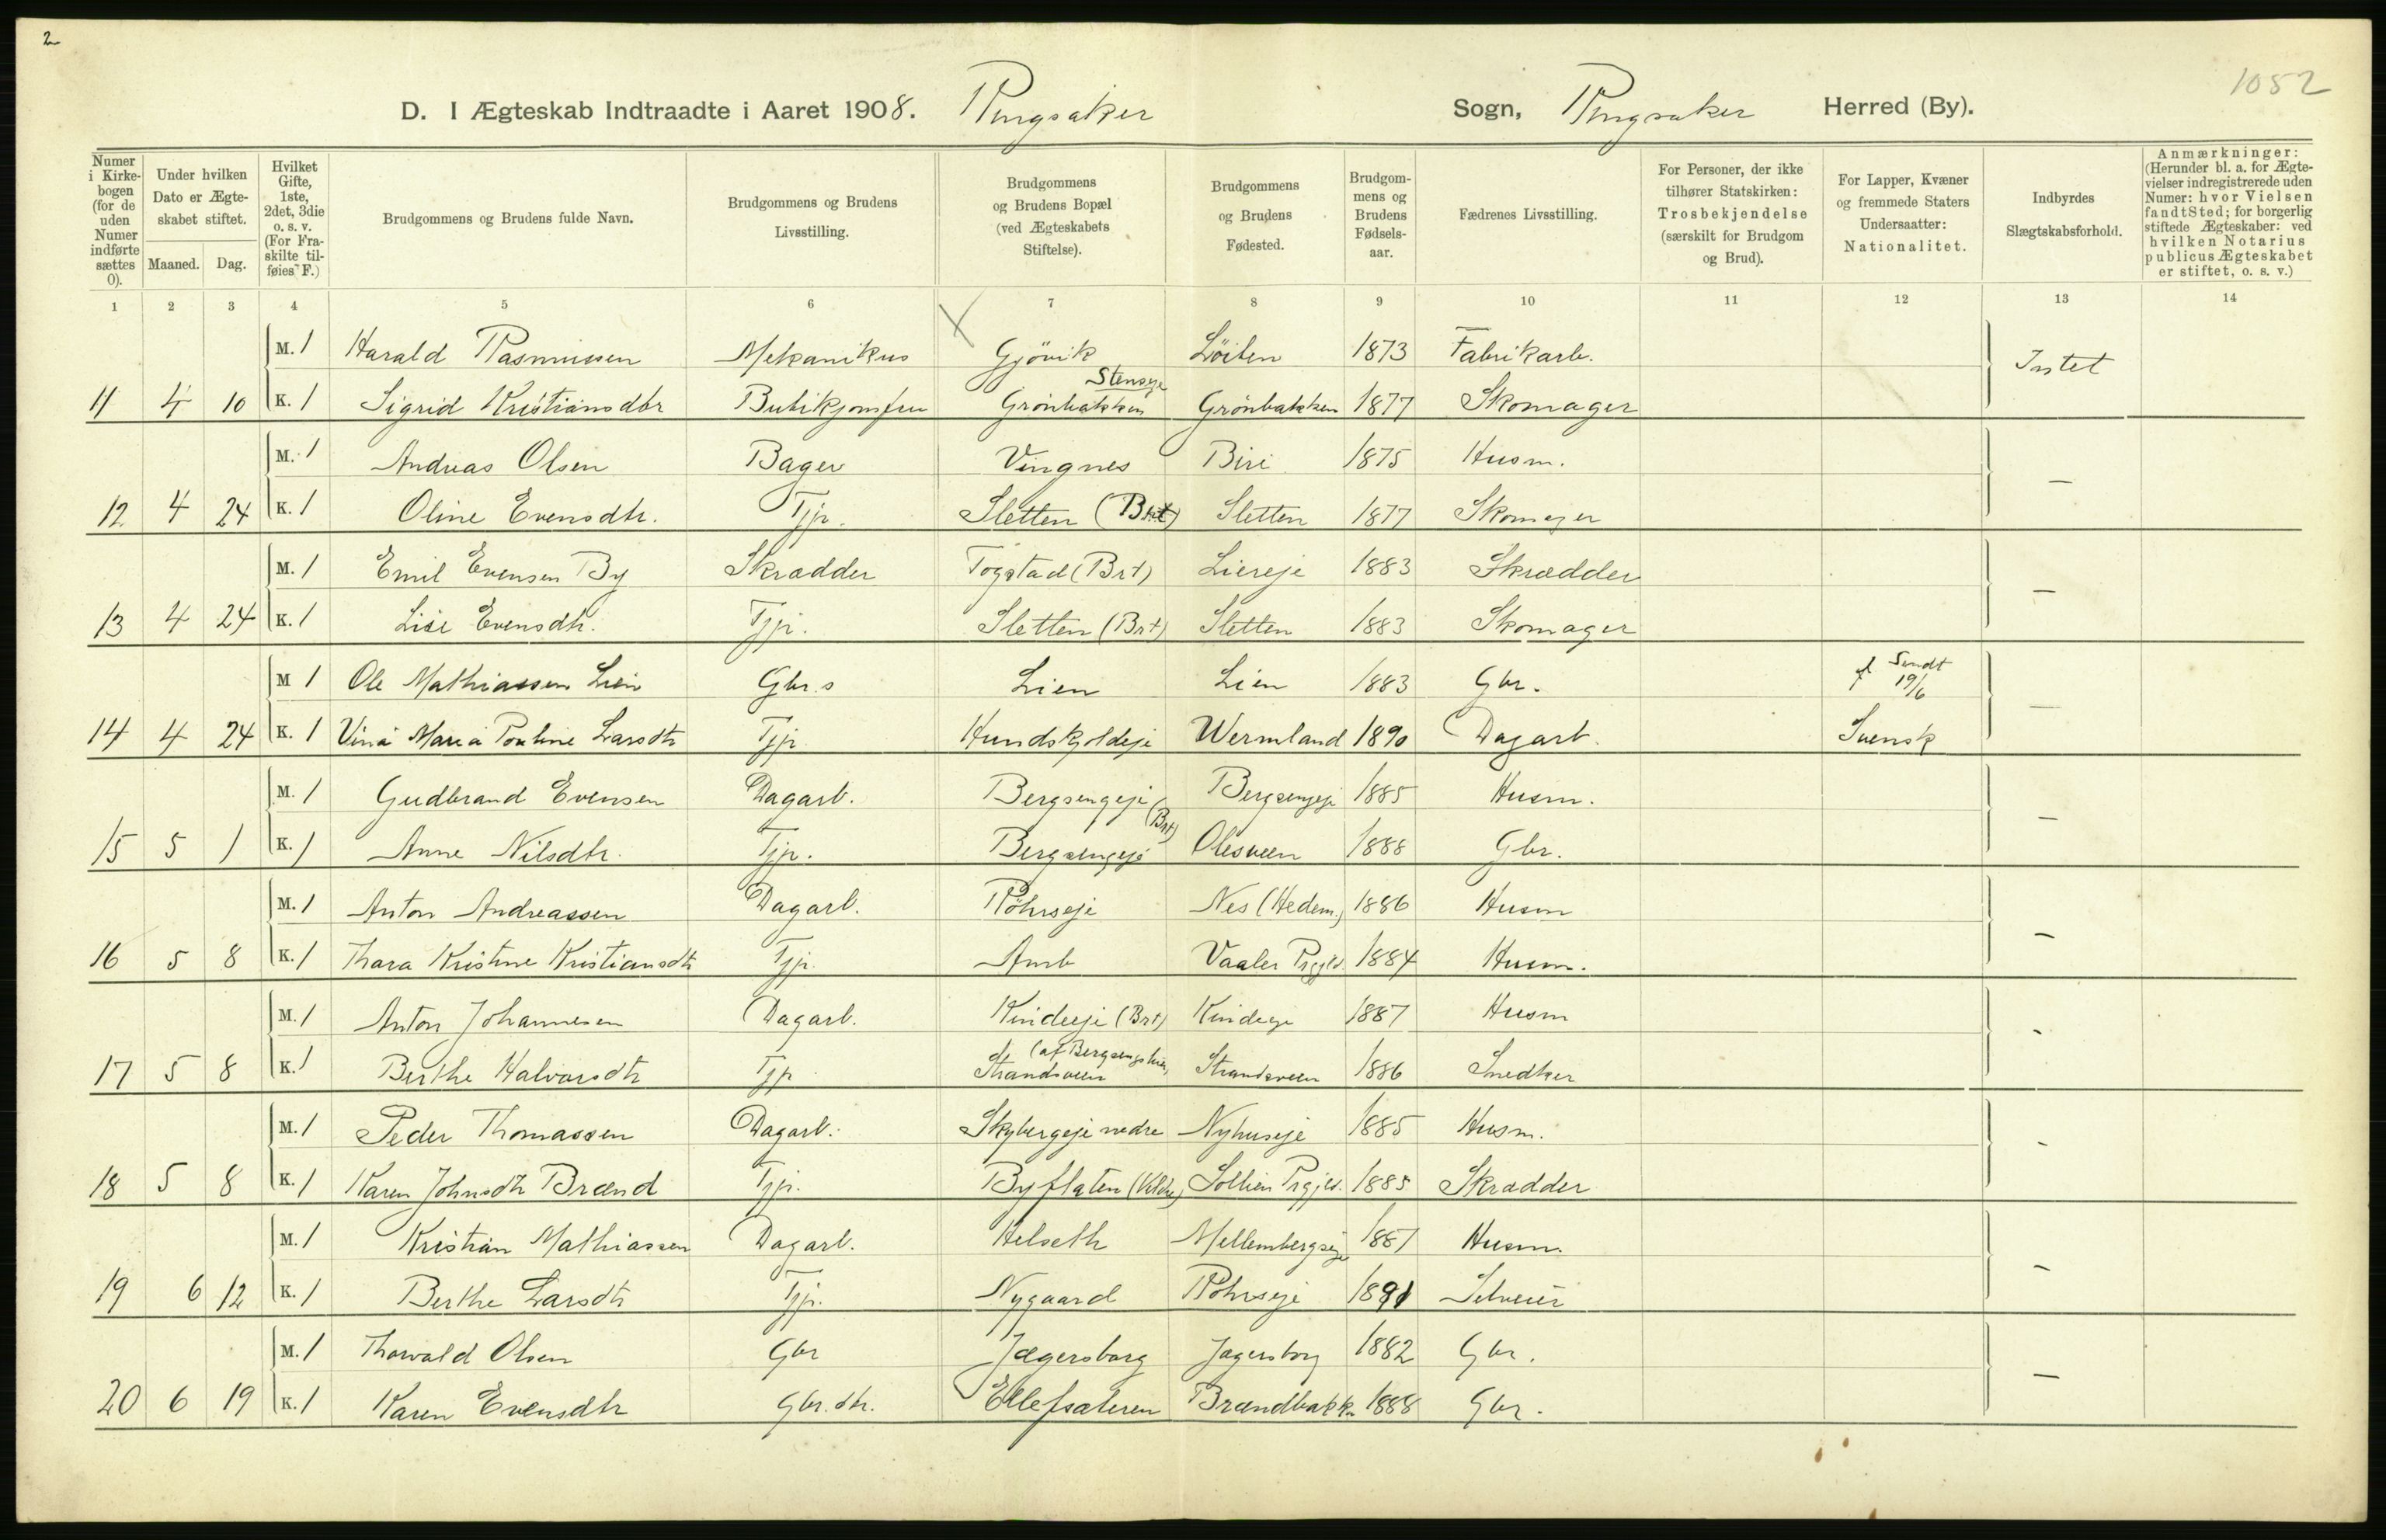 2
1052
D. I Ægteskab Indtraadte i Aaret 1908. Ringsaker Sogn, Ringsaker Herred (By).
Numer i Kirke-bogen (for de uden Numer indførte sættes 0).
Under hvilken Dato er Ægte-skabet stiftet.
Maaned. Dag.
Hvilket Gifte, 1ste, 2det, 3die o. s. v. (For Fra-skilte til-føies F.)
Brudgommens og Brudens fulde Navn.
Brudgommens og Brudens Livsstilling.
Brudgommens og Brudens Bopæl (ved Ægteskabets Stiftelse).
Brudgommens og Brudens Fødested.
Brudgom-mens og Brudens Fødsels-aar.
Fædrenes Livsstilling.
For Personer, der ikke tilhører Statskirken: Trosbekjendelse (særskilt for Brudgom og Brud).
For Lapper, Kvæner og fremmede Staters Undersaatter: Nationalitet.
Indbyrdes Slægtskabsforhold.
Anmærkninger: (Herunder bl. a. for Ægte-vielser indregistrerede uden Numer: hvor Vielsen fandt Sted; for borgerlig stiftede Ægteskaber: ved hvilken Notarius publicus Ægteskabet er stiftet, o. s. v.)
1 2 3 4 5 6 7 8 9 10 11 12 13 14
M. 1 Harald Rasmussen Mekanikus Gjövik Löiten 1873 Fabrikarb. Intet
11 4 10 K. 1 Sigrid Kristiansdtr Butikjomfru Stenseje Grönbakken Grönbakken 1877 Skomager
M. 1 Andreas Olsen Bager Vingnes Biri 1875 Husm. —
12 4 24 K. 1 Oline Evensdtr. Tjp. Sletten (Brt) Sletten 1877 Skomager
M. 1 Emil Evensen By Skrædder Togstad (Brt) Liereje 1883 Skrædder —
13 4 24 K. 1 Lise Evensdtr. Tjp. Sletten (Brt) Sletten 1883 Skomager
M 1 Ole Mathiassen Lien Gbr.s Lien Lien 1883 Gbr. Sendt 19/6 —
14 4 24 K. 1 Vina Maria Pouline Larsdtr Tjp Hundskjoldeje Wermland 1890 Dagarb. Svensk
M. 1 Gudbrand Evensen Dagarb. Bergsengeje (Brt) Bergsengeje 1885 Husm. —
15 5 1 K. 1 Anne Nilsdtr. Tjp. Bergsengeje Olesveen 1888 Gbr.
M. 1 Anton Andreassen Dagarb. Röhrseje Nes (Hedem.) 1886 Husm —
16 5 8 K. 1 Thara Kristine Kristiansdtr Tjp. Amb Vaaler Prgjld. 1884 Husm.
M. 1 Anton Johannesen Dagarb. Kindeeje (Brt) Kindeeje 1887 Husm -
17 5 8 K. 1 Berthe Halvorsdtr Tjp Strandsveen Strandsveen 1886 Snedker
M. 1 Peder Thomassen Dagarb. Skybergeje nedre Nyhuseje 1885 Husm. -
18 5 8 K. 1 Karen Johnsdtr Brænd Tjp. Byflaten (Veldre) Sollien Prgjld. 1885 Skrædder
M. 1 Kristian Mathiassen Dagarb. Helseth Mellembergseje 1887 Husm. —
19 6 12 K. 1 Berthe Larsdtr Tjp. Nygaard Röhrseje 1891 Selveier
M. 1 Thorvald Olsen Gbr Jægersborg Jægersborg 1882 Gbr. —
20 6 19 K. 1 Karen Evensdtr Gbr. dtr. Ellefsæteren Brændbakk 1888 Gbr.